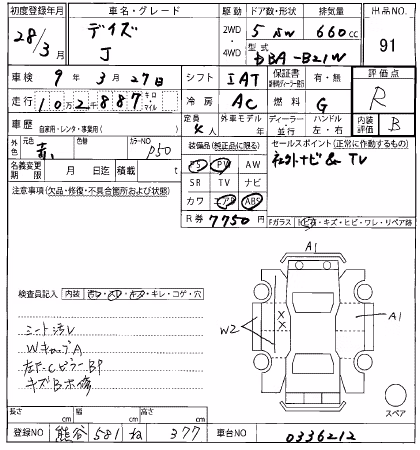 初度登録年月 車名・グレード 駆動 ドア数・形状 排気量 出品NO.
28/3月 デイズ J 2WD・4WD 5 660cc 91
型式 DBA-B21W
車検 9年3月27日 シフト IAT 保証書 有・無 評価点
走行 10万2千887 キロ・マイル 冷房 AC 燃料 G R
車歴 自家用・レンタ・事業用( ) 定員 4人 外車モデル年 ディーラー・並行 ハンドル 左・右 内装評価 B
外色 元色 赤 色替 カラーNO P50 装備品(純正品に限る) セールスポイント(正常に作動するもの)
名義変更期限 月 日迄 積載 t PS PW AW 社外ナビ& TV
注意事項(欠品・修復・不具合箇所および状態) SR TV ナビ
カワ エアB ABS
R券 7750円 Fガラス ・キズ・ヒビ・ワレ・リペア跡
A1
検査員記入 内装 ・キレ・コゲ・穴
W2 A1
シート汚レ
WキャップA
左F.CピラーBP
キズB小修
スペア
長さ cm 幅 cm 高さ cm
登録NO 熊谷 581 ね 377 車台NO 0336212